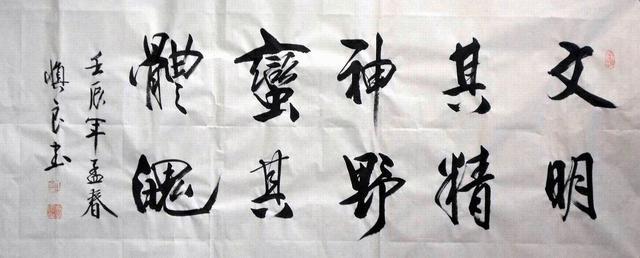 文明
其精
神野
蠻其
體魄
壬辰年孟春
慎良书